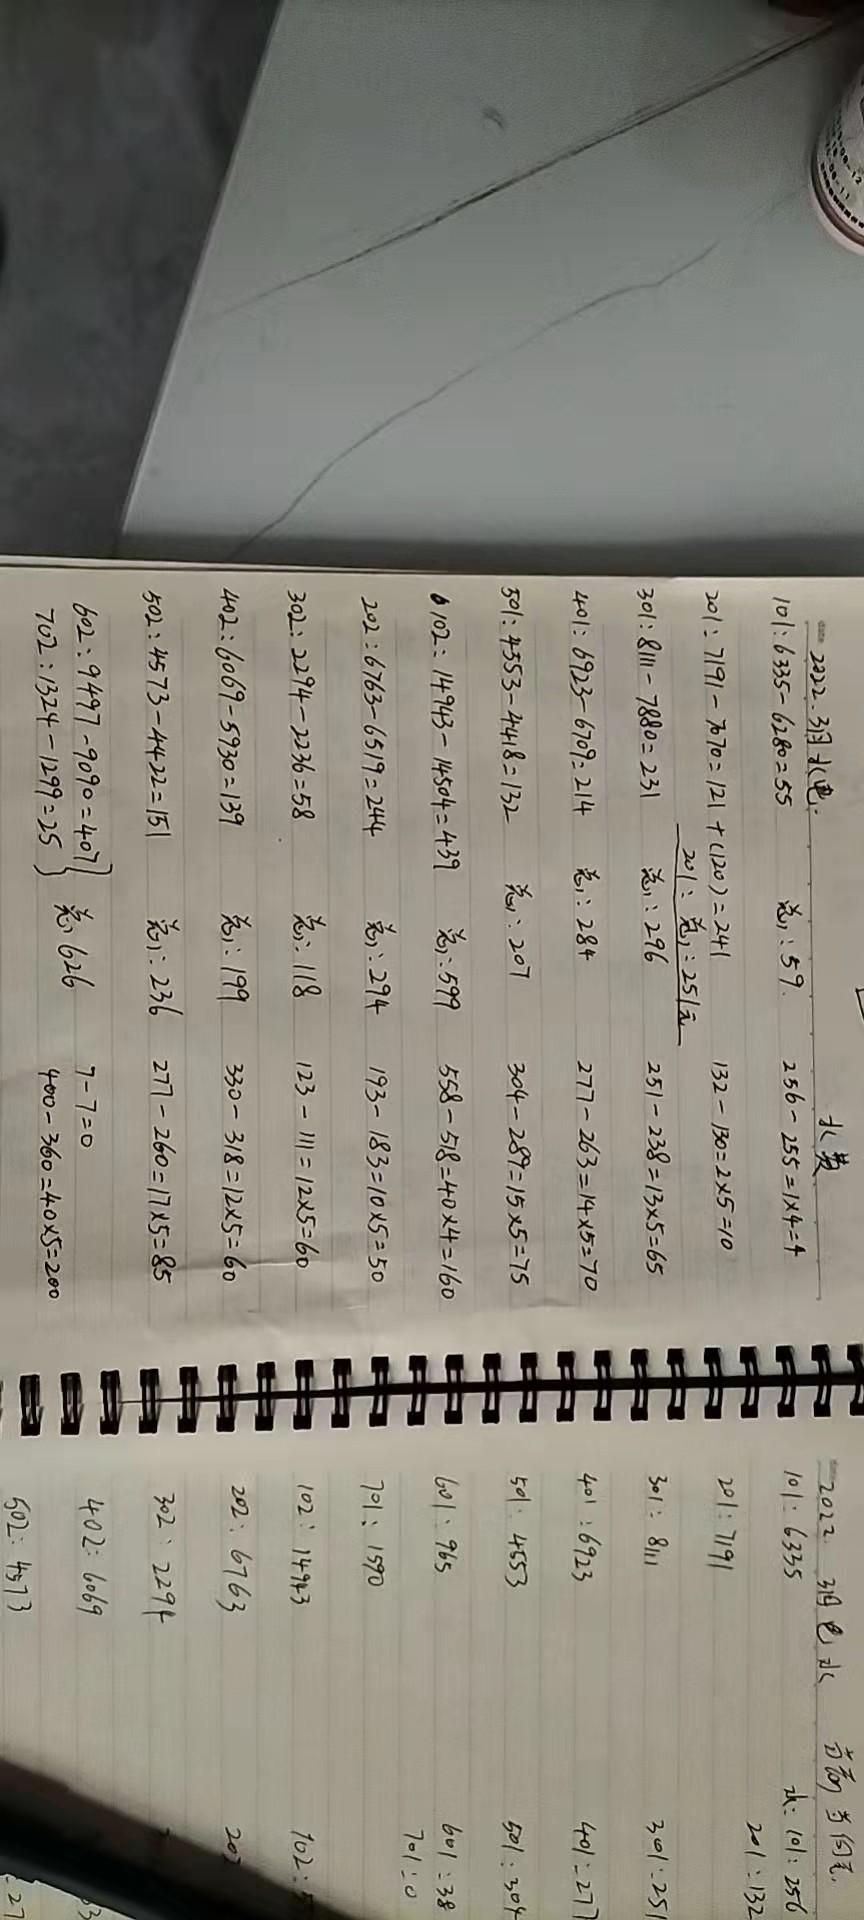 2022.3月水电. 水费
101:6335-6280=55 总:59. 256-255=1×4=4
201:7191-7070=121+(120)=241 132-130=2×5=10
201:总:251元
301:8111-7880=231 总:296 251-238=13×5=65
401:6923-6709=214 总:284 277-263=14×5=70
501:4553-4418=132 总:207 304-289=15×5=75
102:14943-14504=439 总:599 558-518=40×4=160
202:6763-6519=244 总:294 193-183=10×5=50
302:2294-2236=58 总:118 123-111=12×5=60
402:6069-5930=139 总:199 330-318=12×5=60
502:4573-4422=151 总:236 277-260=17×5=85
602:9497-9090=407 7-7=0
总:626
702:1324-1299=25 400-360=40×5=200
2022. 3月电水
101:6335 水:101:256
201:7191 201:132
301:8111 301:251
401:6923 401:277
501:4553 501:304
601:965 601:38
701:1590 701:0
102:14943 102:
202:6763
302:2294
402:6069
502:4573